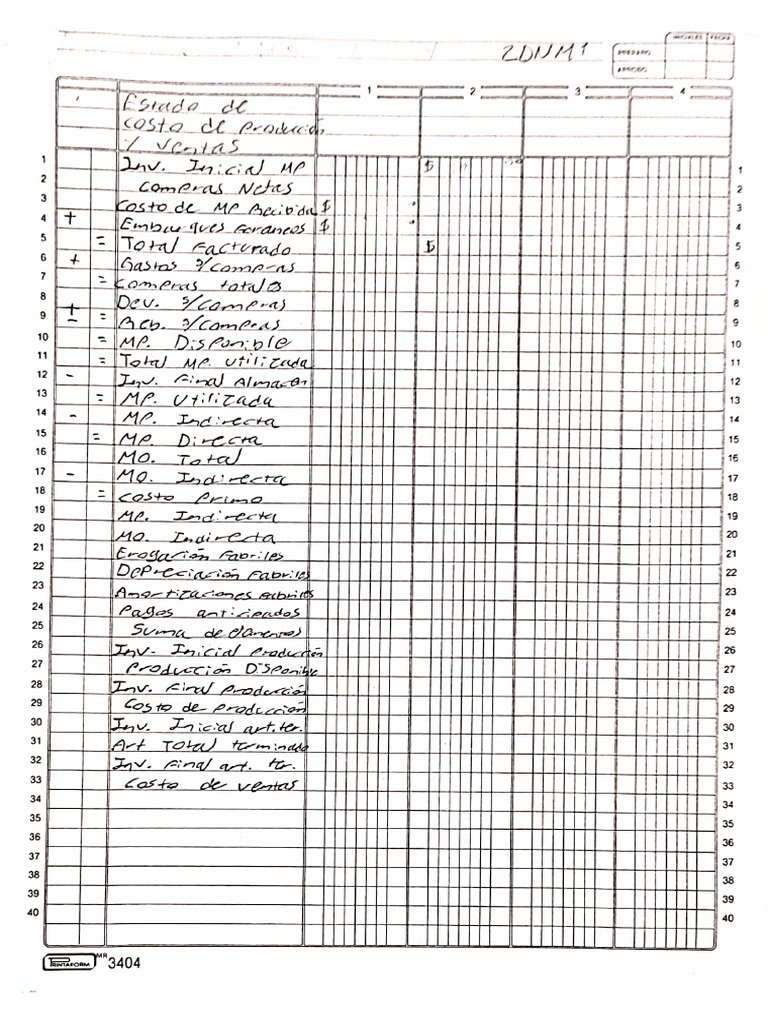 2DNM1
INICIALES FECHA
PREPARO
APROBO
1 2 3 4
Estado de
costo de producción
y ventas
1 Inv. Inicial MP $ 1
2 Compras Netas 2
3 Costo de MP Recibida $ 3
4 + Embarques Foraneos $ 4
5 = Total Facturado $ 5
6 + Gastos s/compras 6
7 = Compras totales 7
8 + Dev. s/compras 8
9 - = Reb. s/compras 9
10 = MP. Disponible 10
11 = Total MP. Utilizada 11
12 - Inv. Final Almacen 12
13 = MP. Utilizada 13
14 - MP. Indirecta 14
15 = MP. Directa 15
16 MO. Total 16
17 - MO. Indirecta 17
18 = Costo Primo 18
19 MP. Indirecta 19
20 MO. Indirecta 20
21 Erogación Fabriles 21
22 Depreciación Fabriles 22
23 Amortizaciones Fabriles 23
24 Pagos anticipados 24
25 Suma de elementos 25
26 Inv. Inicial producción 26
27 Producción Disponible 27
28 Inv. Final producción 28
29 Costo de producción 29
30 Inv. Inicial art. ter. 30
31 Art Total terminado 31
32 Inv. Final art. ter. 32
33 Costo de ventas 33
34 34
35 35
36 36
37 37
38 38
39 39
40 40
PRINTAFORM MR 3404